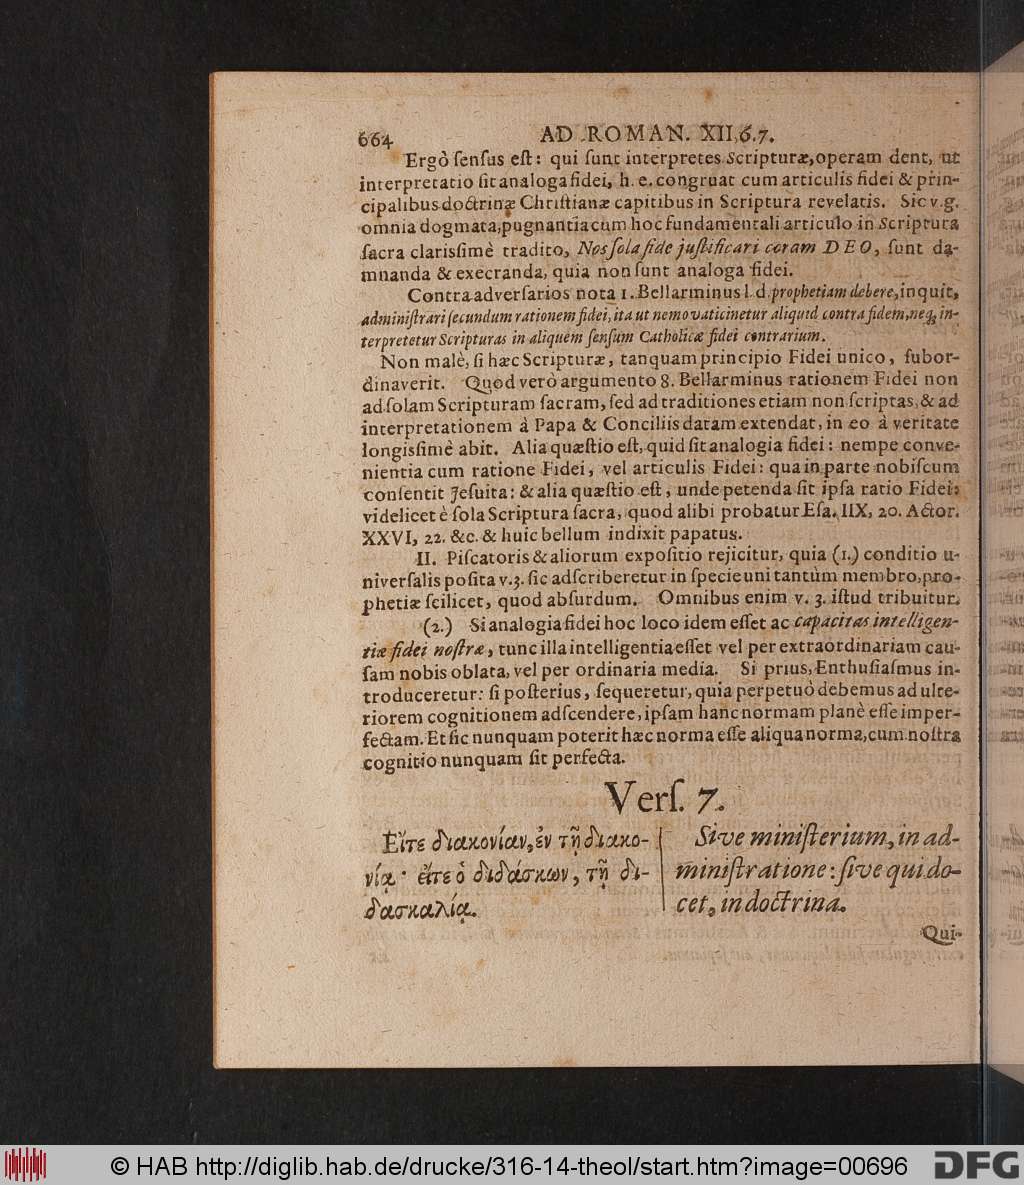 664 AD ROMAN. XII, 6. 7.
Ergò ſenſus eſt: qui ſunt interpretes Scripturæ, operam dent, ut
interpretatio ſit analoga fidei, h. e. congruat cum articulis fidei & prin-
cipalibus doctrinæ Chriſtianæ capitibus in Scriptura revelatis. Sic v. g.
omnia dogmata, pugnantia cum hoc fundamentali articulo in Scriptura
ſacra clarisſimè tradito, Nos ſola fide juſtificari coram DEO, ſunt da-
mnanda & execranda, quia non ſunt analoga fidei.
Contra adverſarios nota 1. Bellarminus l. d. prophetiam debere, inquit,
adminiſtrari ſecundum rationem fidei, ita ut nemo vaticinetur aliquid contra fidem, neq; in-
terpretetur Scripturas in aliquem ſenſum Catholicæ fidei contrarium.
Non malè, ſi hæc Scripturæ, tanquam principio Fidei unico, ſubor-
dinaverit. Quod verò argumento 8. Bellarminus rationem Fidei non
ad ſolam Scripturam ſacram, ſed ad traditiones etiam non ſcriptas, & ad
interpretationem à Papa & Conciliis datam extendat, in eo à veritate
longisſimè abit. Alia quæſtio eſt, quid ſit analogia fidei: nempe conve-
nientia cum ratione Fidei, vel articulis Fidei: qua in parte nobiſcum
conſentit Jeſuita: & alia quæſtio eſt, unde petenda ſit ipſa ratio Fidei:
videlicet è ſola Scriptura ſacra, quod alibi probatur Eſa. IIX, 20. Actor.
XXVI, 22. &c. & huic bellum indixit papatus.
II. Piſcatoris & aliorum expoſitio rejicitur, quia (1.) conditio u-
niverſalis poſita v. 3. ſic adſcriberetur in ſpecie uni tantùm membro, pro-
phetiæ ſcilicet, quod abſurdum. Omnibus enim v. 3. iſtud tribuitur.
(2.) Si analogia fidei hoc loco idem eſſet ac capacitas intelligen-
tiæ fidei noſtræ, tunc illa intelligentia eſſet vel per extraordinariam cau-
ſam nobis oblata, vel per ordinaria media. Si prius, Enthuſiaſmus in-
troduceretur: ſi poſterius, ſequeretur, quia perpetuò debemus ad ulte-
riorem cognitionem adſcendere, ipſam hanc normam planè eſſe imper-
fectam. Et ſic nunquam poterit hæc norma eſſe aliqua norma, cum noſtra
cognitio nunquam ſit perfecta.
Verſ. 7.
Εἴτε διακονίαν, ἐν τῇ διακο-
νίᾳ· εἴτε ὁ διδάσκων, τῇ δι-
δασκαλίᾳ.
Sive miniſterium, in ad-
miniſtratione: ſive qui do-
cet, in doctrina.
Qui-
© HAB http://diglib.hab.de/drucke/316-14-theol/start.htm?image=00696
DFG